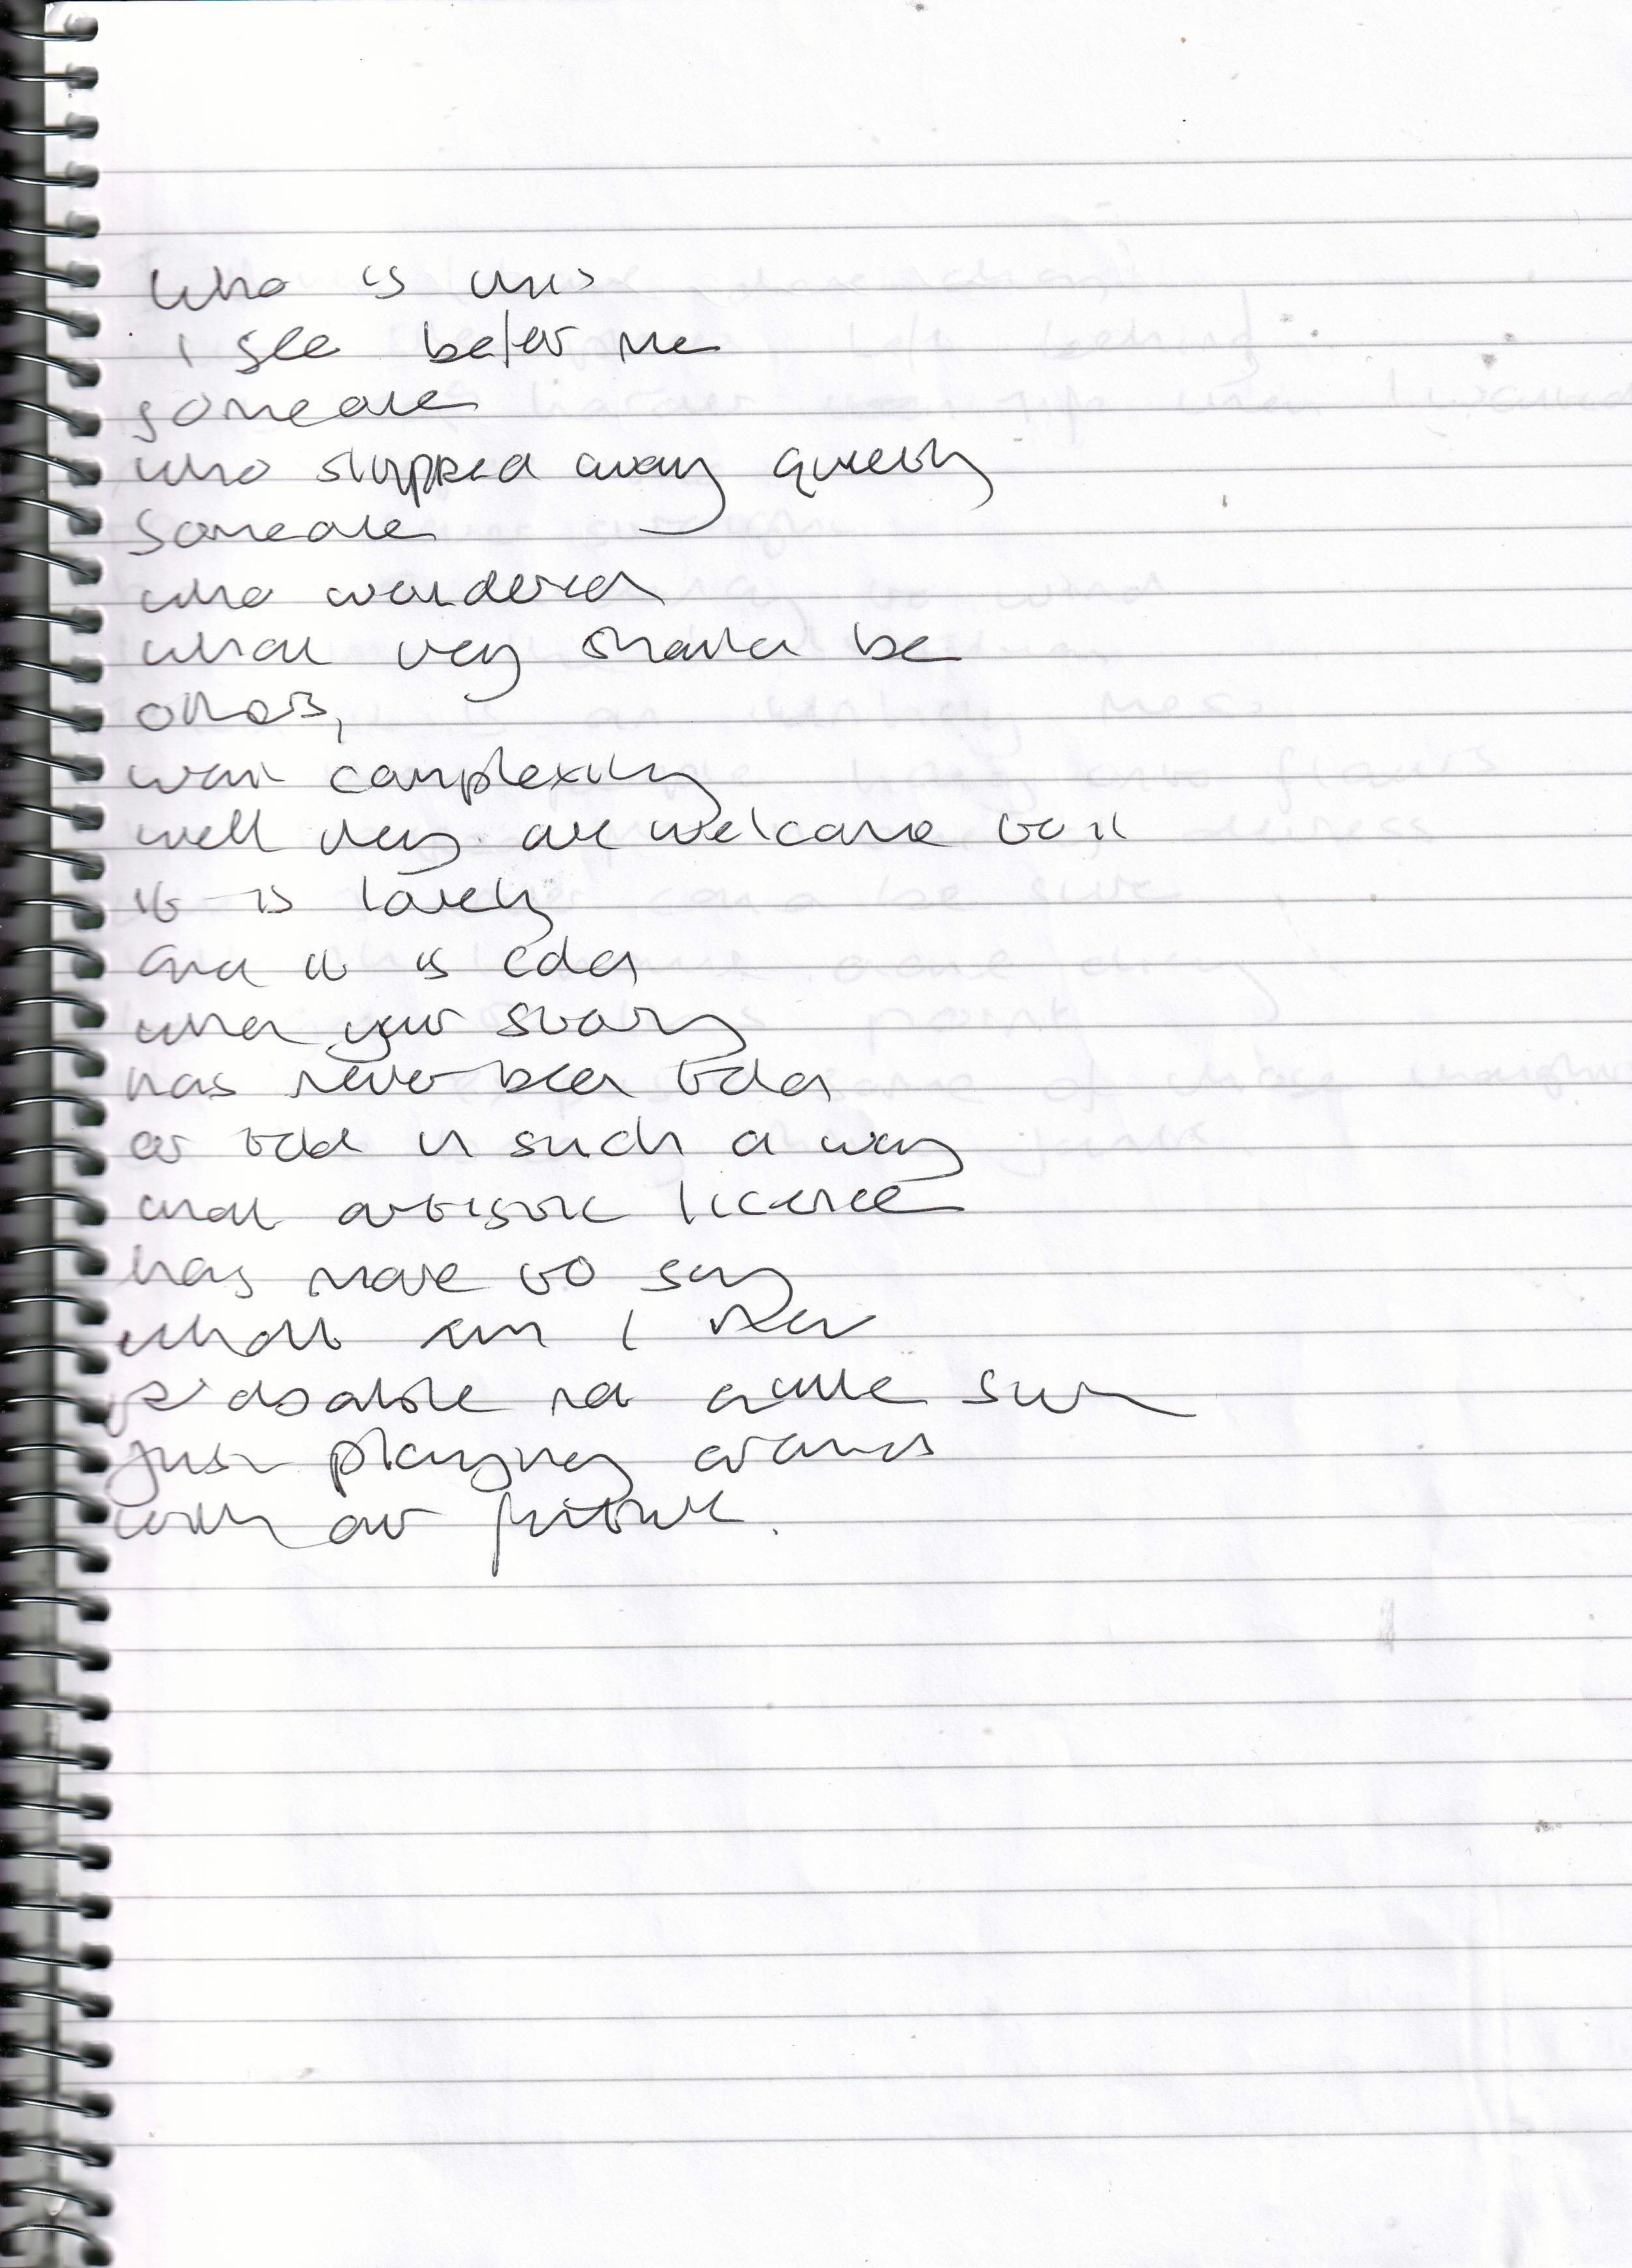 who is this
i see before me
someone
who slipped away quietly
someone
who wondered
what they should be
others,
want complexity
well they are welcome to it
it is lovely
and it is
when your story
has never been
or told in such a way
that artistic licence
has more to say
what am i then
not quite sure
just playing around
with our future.